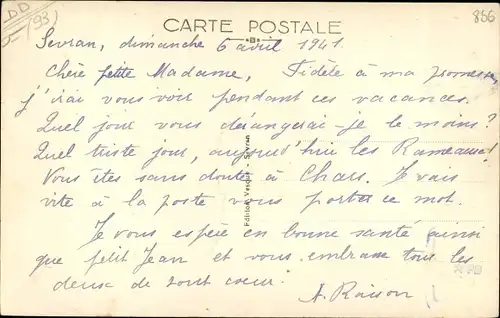 DD
(93)
856
CARTE POSTALE
Sevran, dimanche 6 avril 1941.
Chère petite Madame, Fidèle à ma promesse,
j'irai vous voir pendant ces vacances.
Quel jour vous dérangerai-je le moins?
Quel triste jour, aujourd'hui les Rameaux!
Vous êtes sans doute à Chars. Je vais
vite à la poste vous porter ce mot.
Je vous espère en bonne santé ainsi
que petit Jean et vous embrasse tous les
deux de tout coeur.
A. Raison
Edition Vesque - Sevran